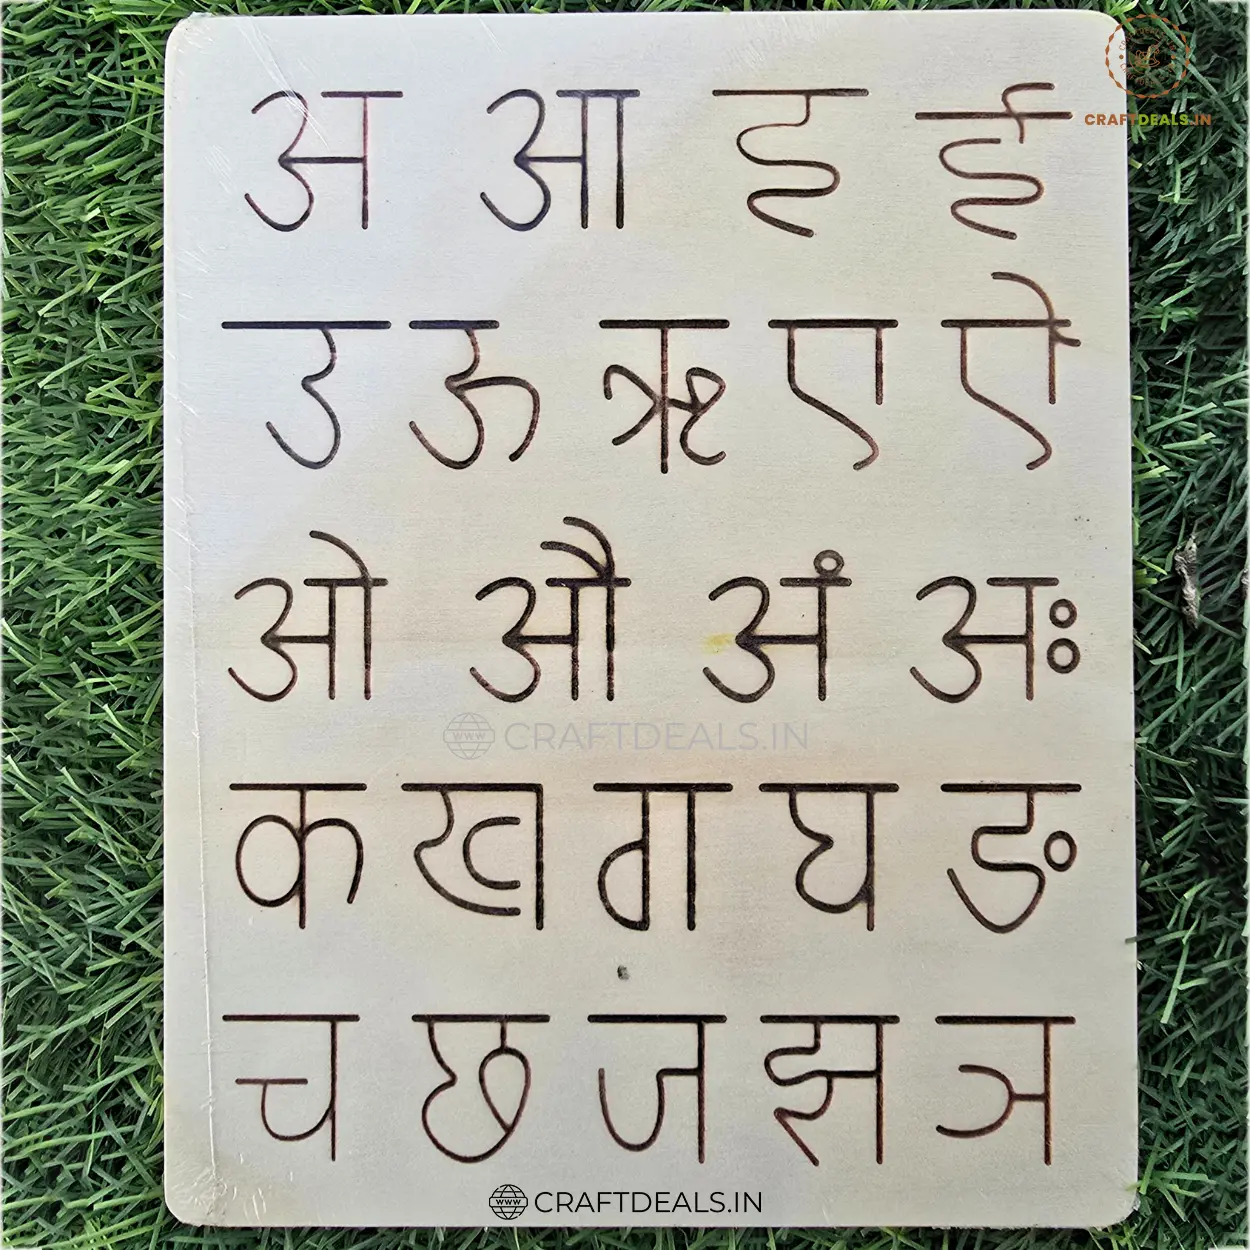 CRAFTDEALS.IN
अ आ इ ई
उ ऊ ऋ ए ऐ
ओ औ अं अः
WWW CRAFTDEALS.IN
क ख ग घ ङ
च छ ज झ ञ
WWW CRAFTDEALS.IN